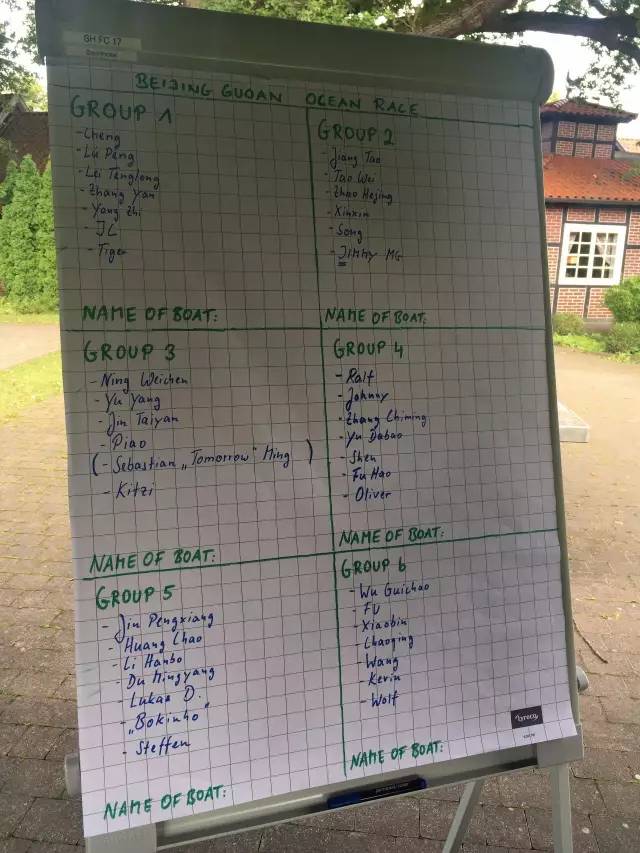 SH FC 17
BEIJING GUOAN OCEAN RACE
GROUP 1
- Cheng
- Lü Peng
- Lei Tenglong
- Zhang Yan
- Yang Zhi
- JC
- Tiger
NAME OF BOAT:
GROUP 2
- Jiang Tao
- Tao Wei
- Zhao Hejing
- Xinxin
- Song
- JIMMY MG
NAME OF BOAT:
GROUP 3
- Ning Weichen
- Yu Yang
- Jin Taiyan
- Piao
(- Sebastian „Tomorrow" Ming )
- Kitzi
NAME OF BOAT:
GROUP 4
- Ralf
- Johnny
- Zhang Chiming
- Yu Dabao
- Shen
- Fu Hao
- Oliver
NAME OF BOAT:
GROUP 5
- Jin Pengxiang
- Huang Chao
- Li Hanbo
- Du Mingyang
- Lukas D.
- „Bokinho"
- Steffen
NAME OF BOAT:
GROUP 6
- Wu Guichao
- FU
- Xiaobin
- Chaoqing
- Wang
- Kevin
- Wolf
NAME OF BOAT: